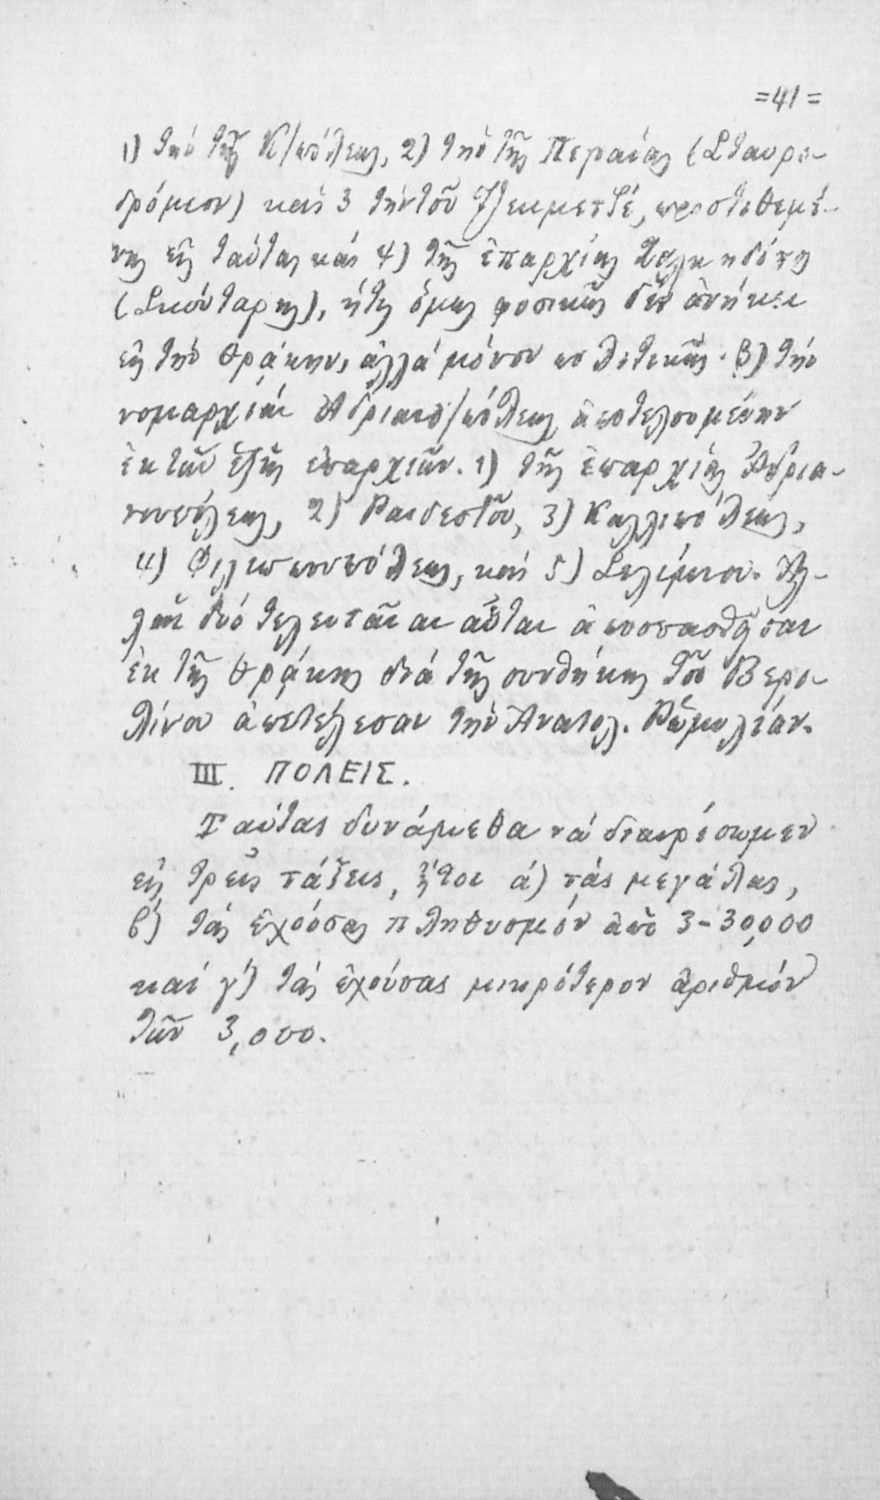 =41=
1) τὴν τῆς Κ/πόλεως, 2) τὴν τῆς Περαίας (Σταυρο-
δρόμιον) καὶ 3 τὴν τοῦ Τζεκμετζέ, προστιθεμέ-
νης εἰς ταύτας καὶ 4) τῆς ἐπαρχίας Χαλκηδόνος
(Σκούταρης), ἥτις ὅμως φυσικῶς δὲν ἀνήκει
εἰς τὴν Θράκην, ἀλλὰ μόνον πολιτικῶς. β) τὴν
νομαρχίαν Ἀδριανο/πόλεως ἀποτελουμένην
ἐκ τῶν ἑξῆς ἐπαρχιῶν. 1) τῆς ἐπαρχίας Ἀδρια-
νουπόλεως, 2) Ραιδεστοῦ, 3) Καλλιπόλεως,
4) Φιλιππουπόλεως, καὶ 5) Σελίμνου. Ἀλ-
λαι δύο τελευταῖαι αὗται ἀποσπασθεῖσαι
ἐκ τῆς Θράκης διὰ τῆς συνθήκης τοῦ Βερο-
λίνου ἀπετέλεσαν τὴν Ἀνατολ. Ρωμυλίαν.
III. ΠΟΛΕΙΣ.
Ταύτας δυνάμεθα νὰ διαιρέσωμεν
εἰς τρεῖς τάξεις, ἤτοι ά) τὰς μεγάλας,
β') τὰς ἐχούσας πληθυσμὸν ἀπὸ 3-30,000
καὶ γ') τὰς ἐχούσας μικρότερον ἀριθμὸν
τῶν 3,000.